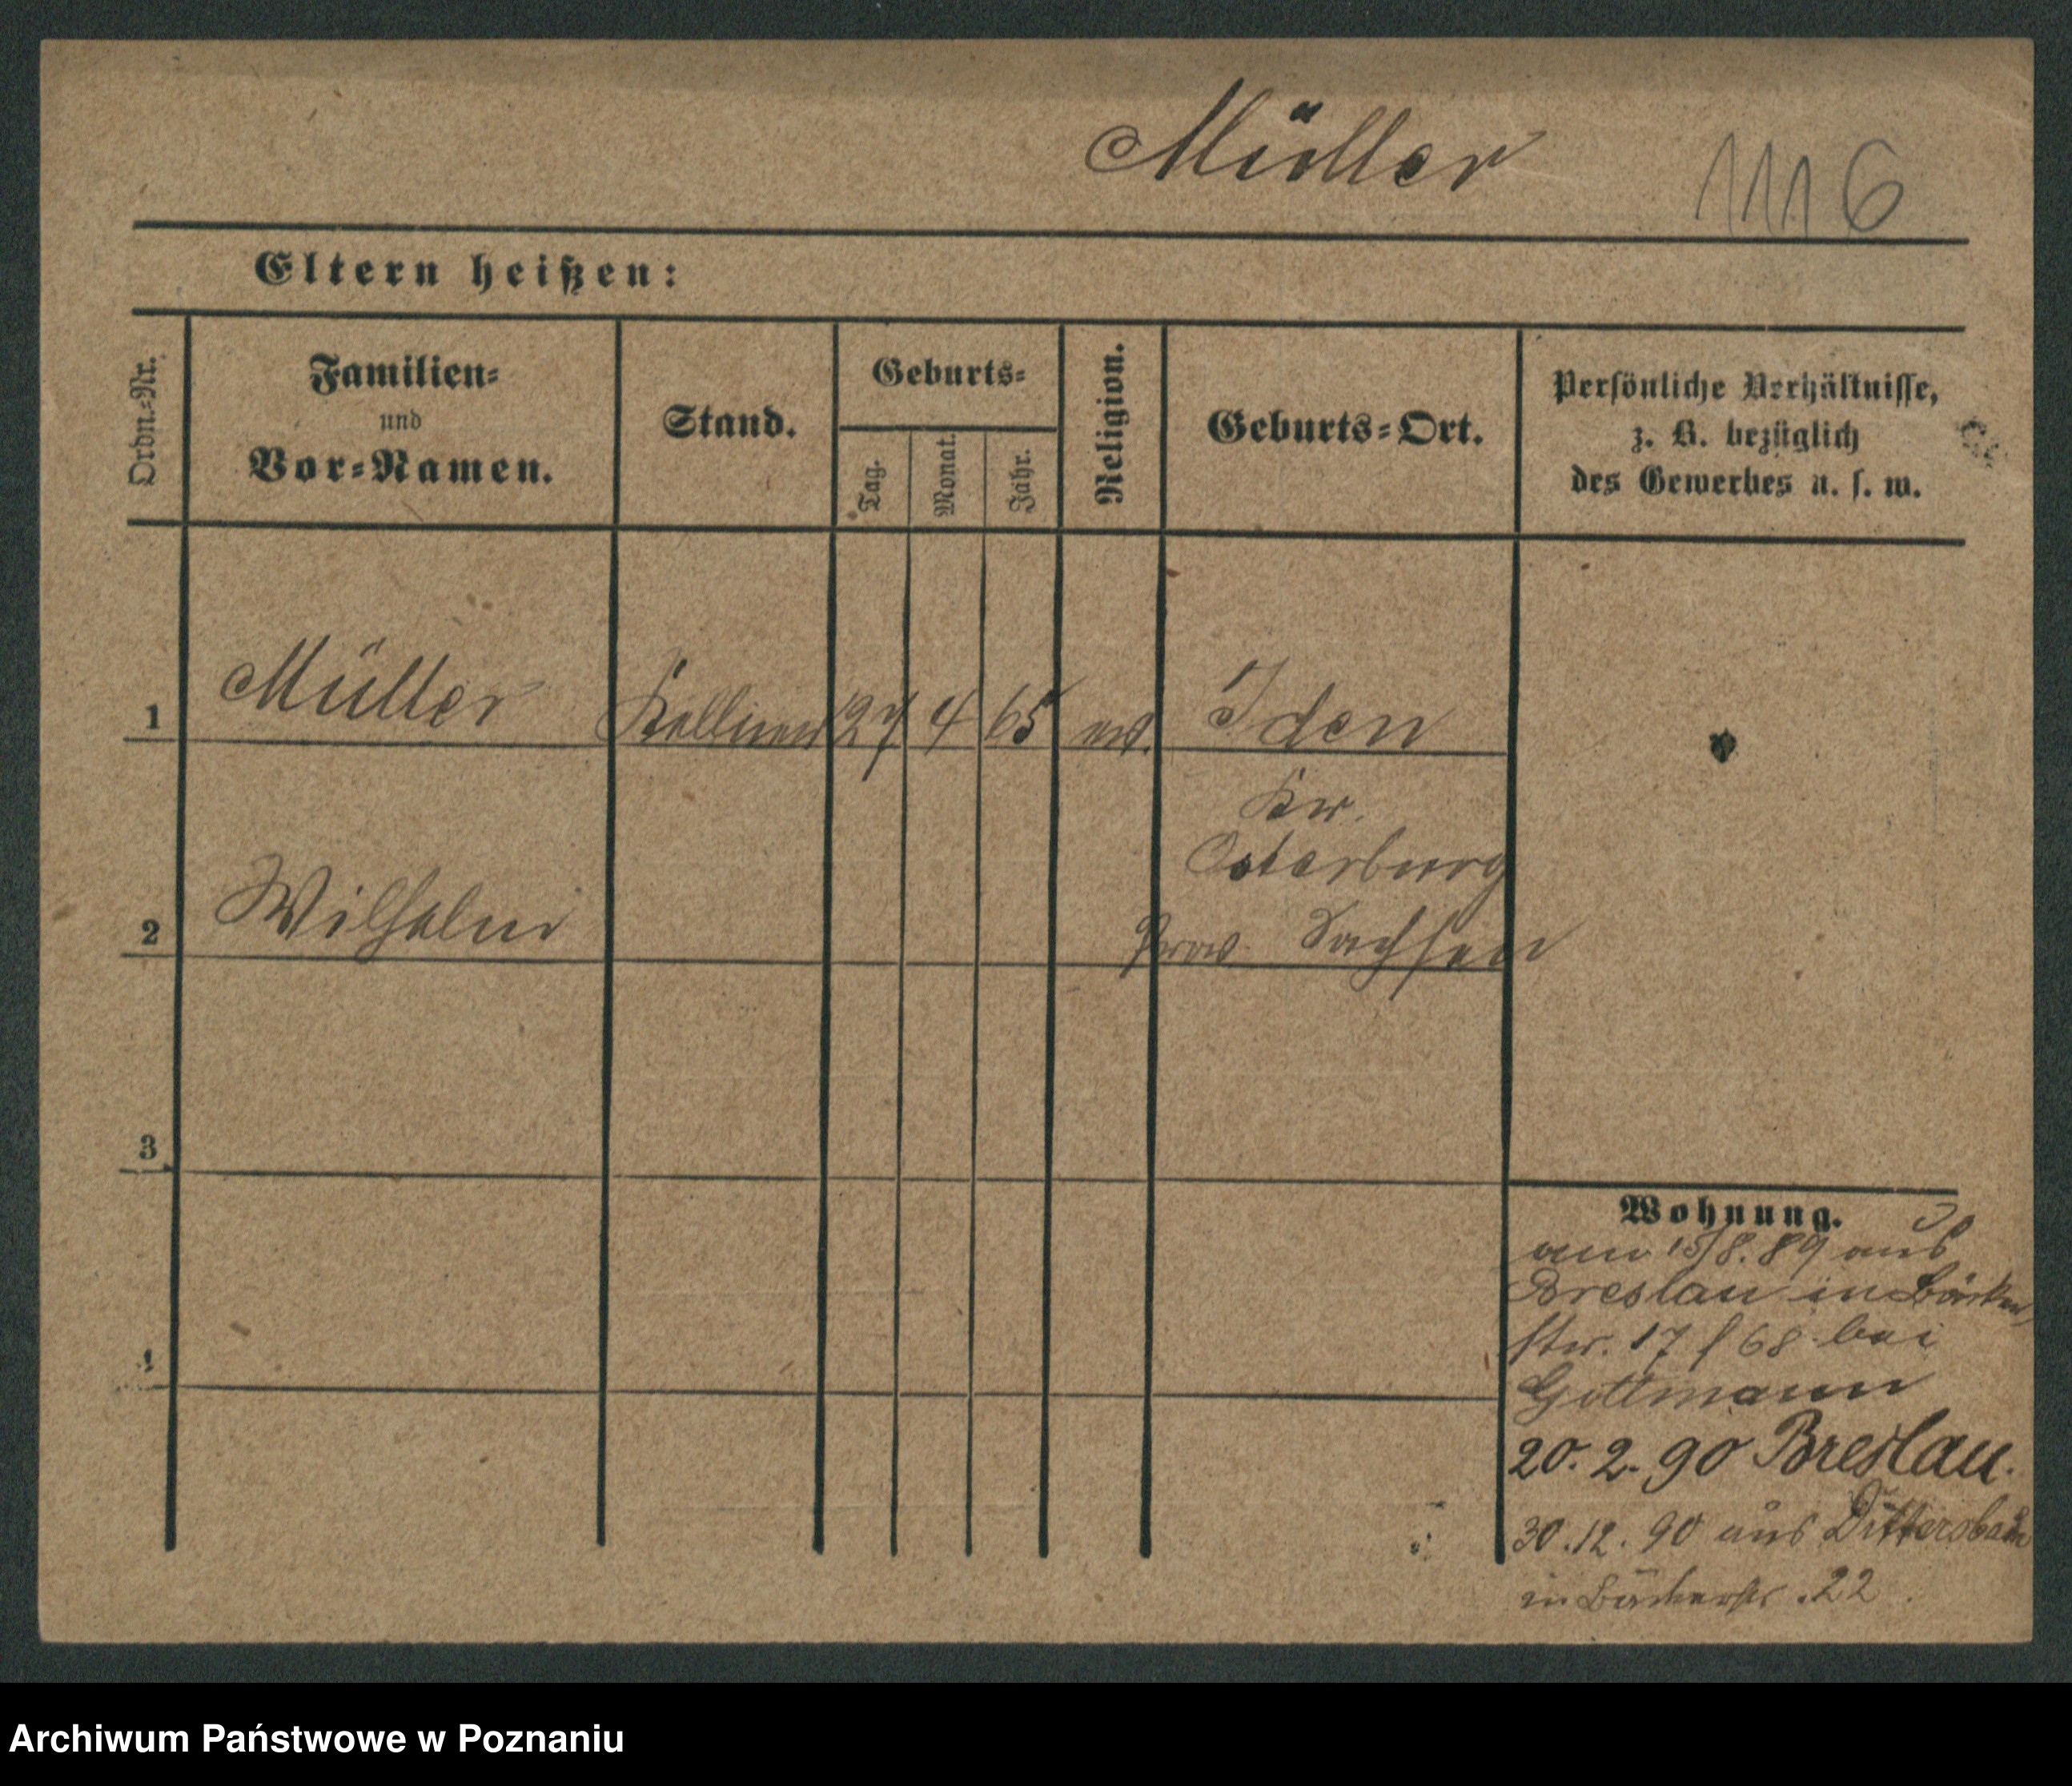 Müller 1116
Eltern heißen:
Ordn.-Nr.
Familien-
und
Vor-Namen.
Stand.
Geburts-
Tag.
Monat.
Jahr.
Religion.
Geburts-Ort.
Persönliche Verhältnisse,
z. B. bezüglich
des Gewerbes u. s. w.
1 Müller Kellner 27 4 65 ev. Iden
Kr.
Osterburg
2 Wilhelm Prov. Sachsen
3
4
Wohnung.
am 15/8. 89 aus
Breslau in Bäcker
str. 17 f 68 bei
Gottmann
20. 2. 90 Breslau.
30. 12. 90 aus Dittersbach
in Bäckerstr. 22.
Archiwum Państwowe w Poznaniu